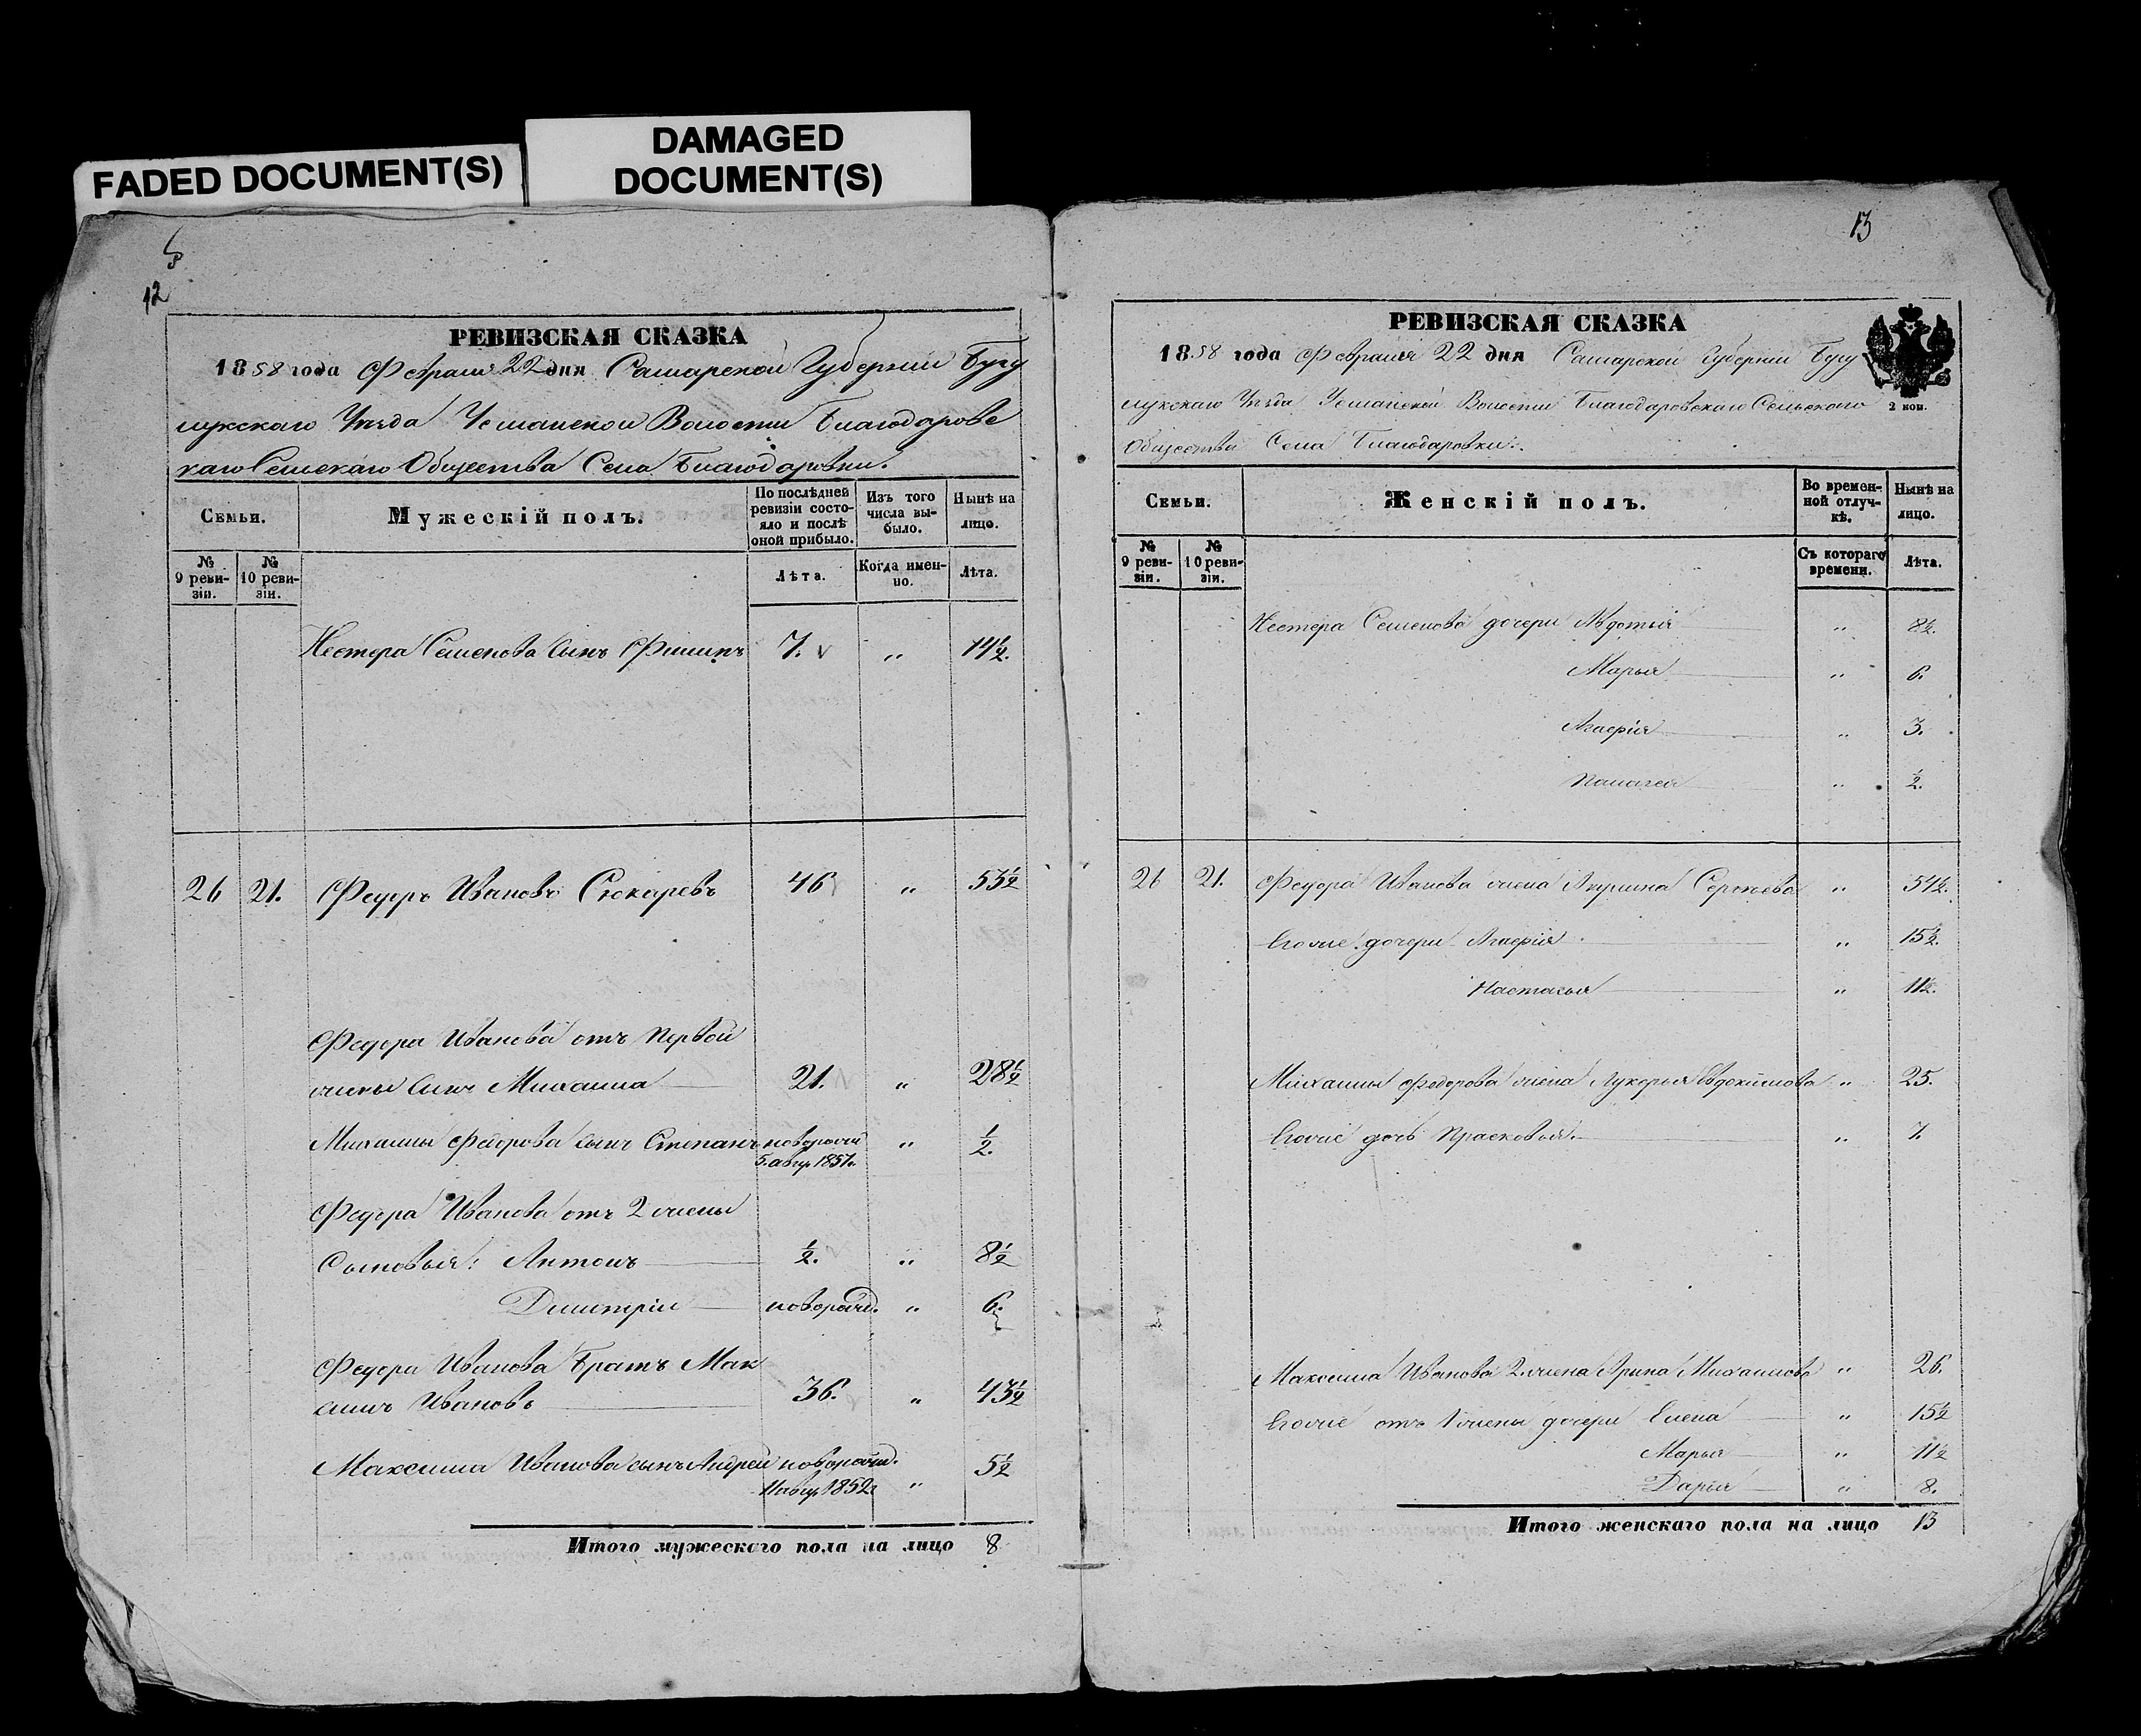 FADED DOCUMENT(S)
DAMAGED
DOCUMENT(S)
12
РЕВИЗСКАЯ СКАЗКА
1858 года Февраля 22 дня Самарской Губерніи Бугу
лукскаго Уѣзда Усманской Волости Благодаровс
каго Сельскаго Общества Села Благодаровки.
Семьи.
Мужескій полъ.
По послѣдней ревизіи состояло и послѣ оной прибыло.
Изъ того числа выбыло.
Нынѣ на лицо.
№ 9 ревизіи.
№ 10 ревизіи.
Лѣта.
Когда именно.
Лѣта.
Нестера Семенова Сынъ Филипъ 7. " 14½.
26 21. Федоръ Ивановъ Сюкаревъ 46 " 53½
Федора Иванова отъ Первой
жены Сынъ Михаила 21. " 28½
Михаилы Федорова сынъ Степанъ новорожд " ½.
5. авгу. 1857г.
Федора Иванова отъ 2 жены
Сыновья: Антонъ ½. " 8½
Дмитріи новорожд. " 6.
Федора Иванова Братъ Мак
симъ Ивановъ 36. " 43½
Максима Иванова сынъ Андреи новорожд. " 5½
11 авгу. 1852г
Итого мужескаго пола на лицо 8
13
РЕВИЗСКАЯ СКАЗКА
1858 года Февраля 22 дня Самарской Губерніи Бугу
лукскаго Уѣзда Усманской Волости Благодаровскаго Сельскаго
2 коп.
Общества Села Благодаровки.
Семьи.
Женскій полъ.
Во временной отлучкѣ.
Нынѣ на лицо.
№ 9 ревизіи.
№ 10 ревизіи.
Съ котораго времени.
Лѣта.
Нестера Семенова дочери Авдотья " 8½.
Марья " 6.
Агафія " 3.
Палагея " ½.
26 21. Федора Иванова жена Акулина Сергѣева " 51½.
Егоже дочери Агафія " 15½.
Настасья " 11½.
Михаилы Федорова жена Лукерья Евдокимова " 25.
Егоже дочь Прасковья. " 7.
Максима Иванова 2. жена Арина Михаилова " 26.
Егоже отъ 1 жены дочери Елена " 15½
Марья " 11½
Дарія " 8.
Итого женскаго пола на лицо 13